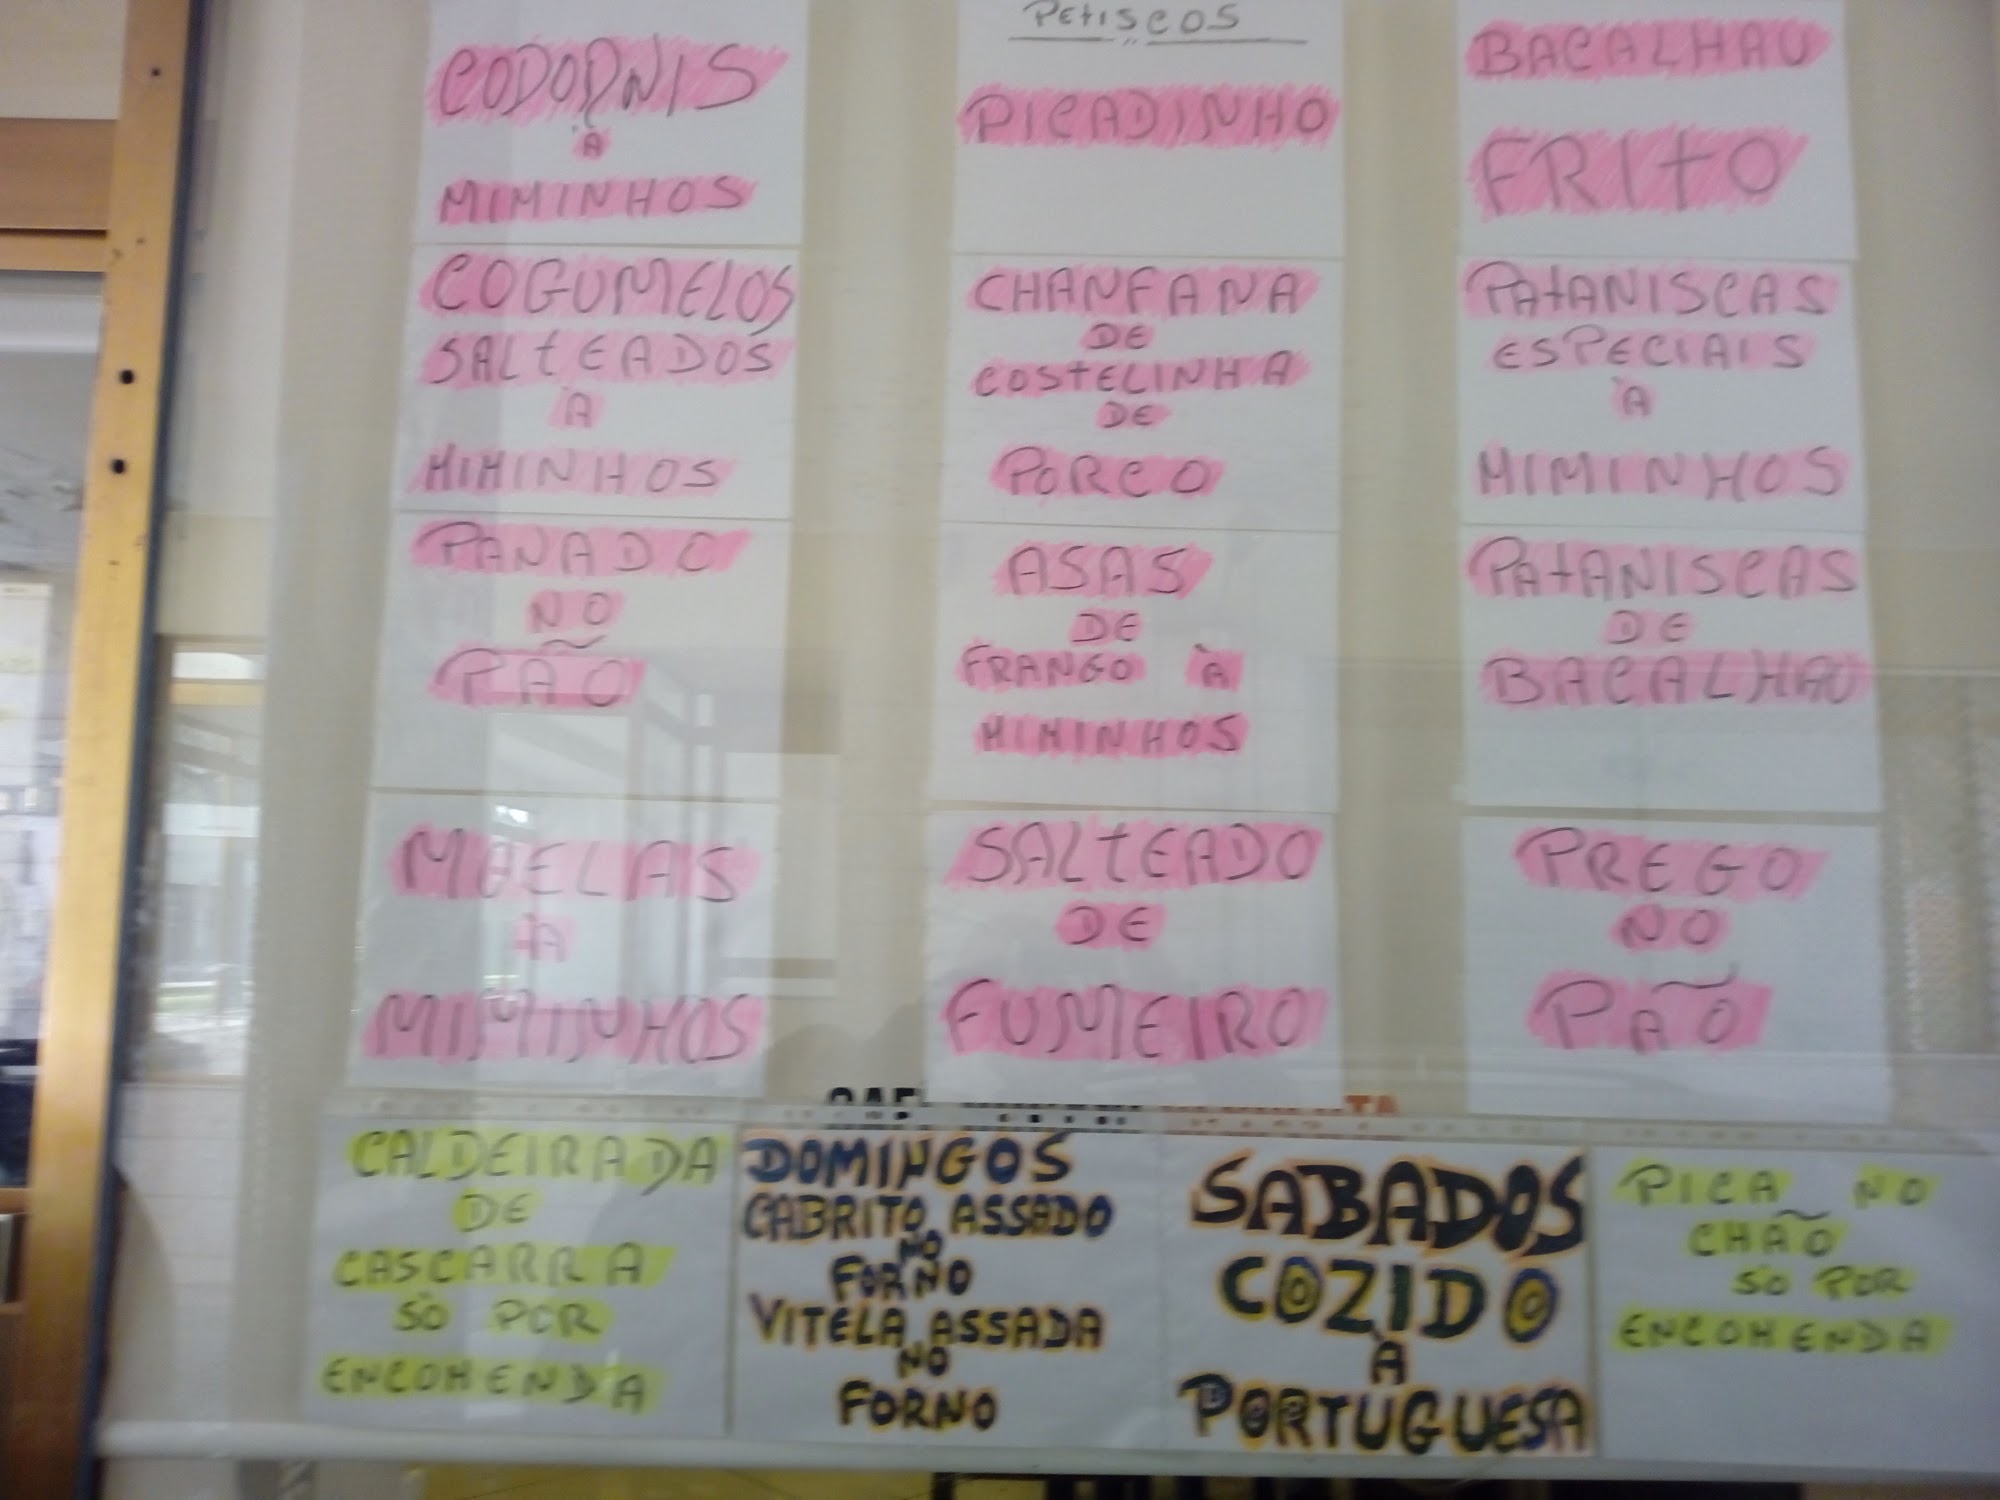 CODORNIS
À
MIMINHOS
COGUMELOS
SALTEADOS
À
MIMINHOS
PANADO
NO
PÃO
MOELAS
À
MIMINHOS
PETISCOS
PICADINHO
CHANFANA
DE
COSTELINHA
DE
PORCO
ASAS
DE
FRANGO À
MIMINHOS
SALTEADO
DE
FUMEIRO
BACALHAU
FRITO
PATANISCAS
ESPECIAIS
À
MIMINHOS
PATANISCAS
DE
BACALHAU
PREGO
NO
PÃO
CALDEIRADA
DE
CASCARRA
SÓ POR
ENCOMENDA
DOMINGOS
CABRITO ASSADO
NO
FORNO
VITELA ASSADA
NO
FORNO
SABADOS
COZIDO
À
PORTUGUESA
PICA NO
CHÃO
SÓ POR
ENCOMENDA